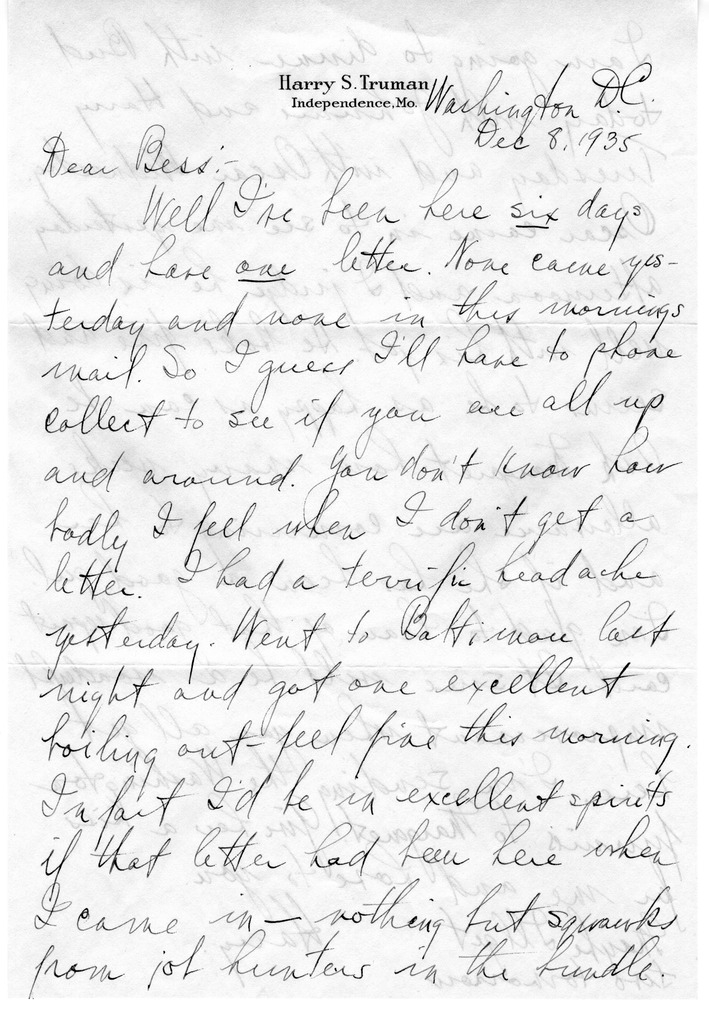 Harry S. Truman
Independence, Mo.
Washington D.C.
Dec 8, 1935
Dear Bess:-
Well I've been here six days
and have one letter. None came yes-
terday and none in this mornings
mail. So I guess I'll have to phone
collect to see if you are all up
and around. You don't know how
badly I feel when I don't get a
letter. I had a terrific headache
yesterday. Went to Baltimore last
night and got one excellent
boiling out - feel fine this morning.
In fact I'd be in excellent spirits
if that letter had been here when
I came in — nothing but squawks
from job hunters in the bundle.